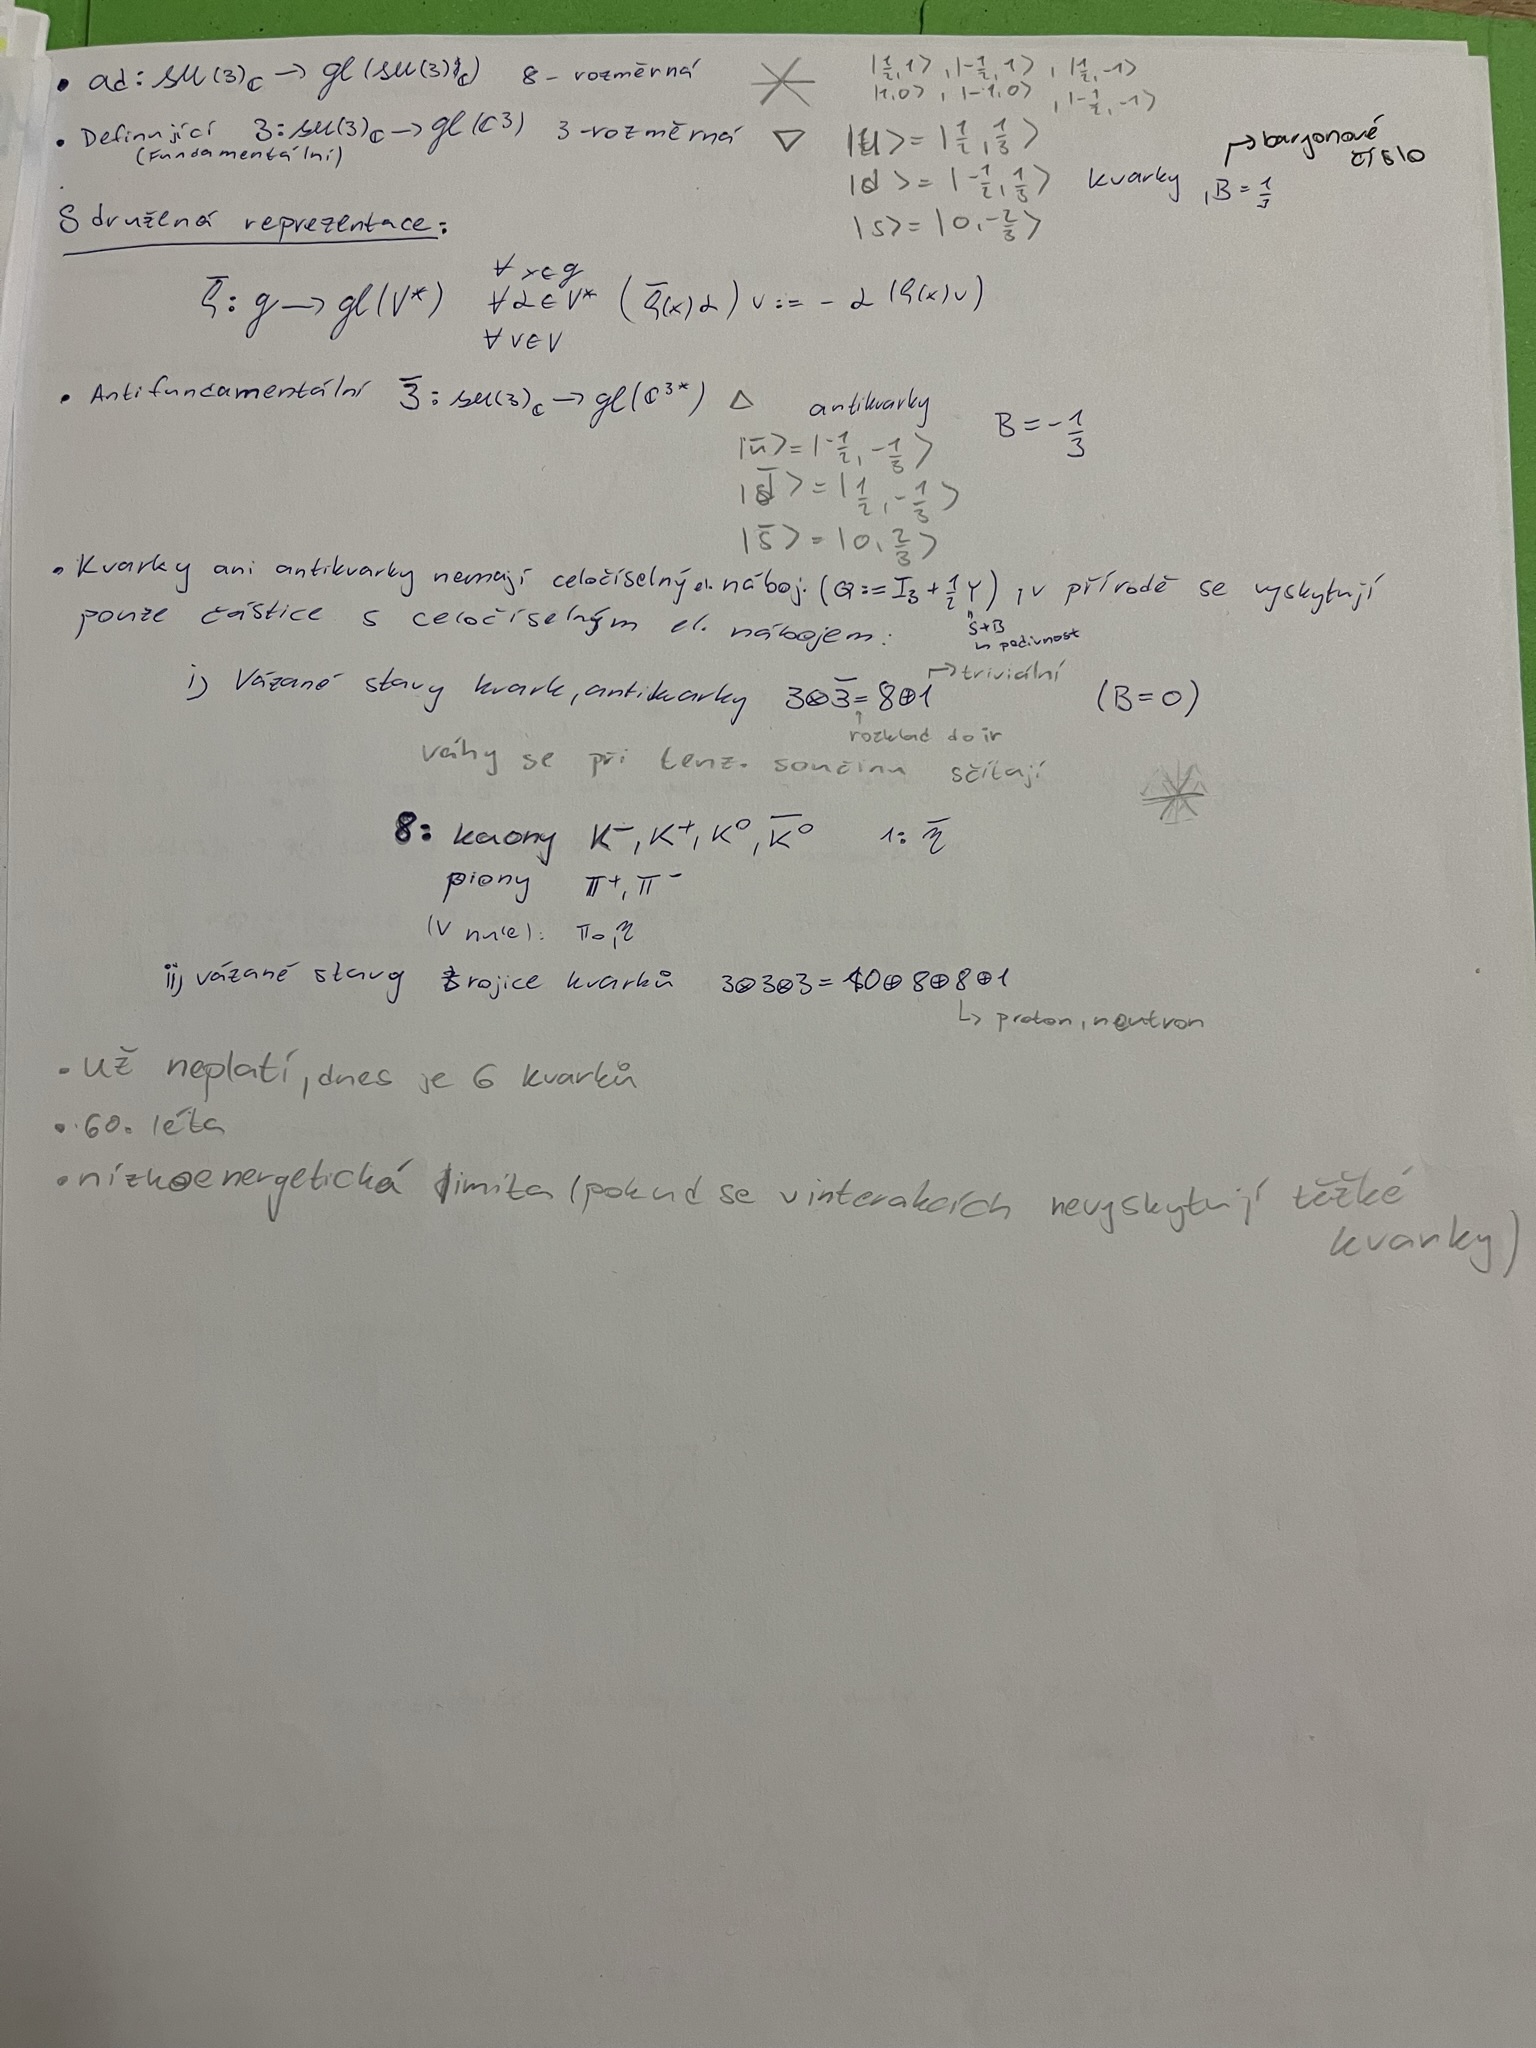 • ad: su(3)_C → gl(su(3)_C) 8-rozměrná |½,1⟩, |-½,1⟩, |½,-1⟩
|1,0⟩, |-1,0⟩, |-½,-1⟩
• Definující 3: su(3)_C → gl(C³) 3-rozměrná ▽ |u⟩ = |½,⅓⟩
(Fundamentální)
↦ baryonové číslo
|d⟩ = |-½,⅓⟩ kvarky, B = ⅓
|s⟩ = |0,-⅔⟩
Sdružená reprezentace:
∀x∈g
ρ̄: g → gl(V*) ∀α∈V* (ρ̄(x)α)v := -α(ρ(x)v)
∀v∈V
• Antifundamentální 3̄: su(3)_C → gl(C³*) △ antikvarky B = -⅓
|ū⟩ = |-½,-⅓⟩
|d̄⟩ = |½,-⅓⟩
|s̄⟩ = |0,⅔⟩
• Kvarky ani antikvarky nemají celočíselný el. náboj. (Q := I₃ + ½Y), v přírodě se vyskytují
S+B
pouze částice s celočíselným el. nábojem:
↳ podivnost
↦ triviální
i) Vázané stavy kvark, antikvarky 3⊗3̄ = 8⊕1 (B=0)
↑ rozklad do ir
váhy se při tenz. součinu sčítají
8: kaony K⁻, K⁺, K⁰, K̄⁰ 1: η̄
piony π⁺, π⁻
(v nule): π₀, η
ii) vázané stavy trojice kvarků 3⊗3⊗3 = 10⊕8⊕8⊕1
↳ proton, neutron
• už neplatí, dnes je 6 kvarků
• 60. léta
• nízkoenergetická limita (pokud se v interakcích nevyskytují těžké
kvarky)